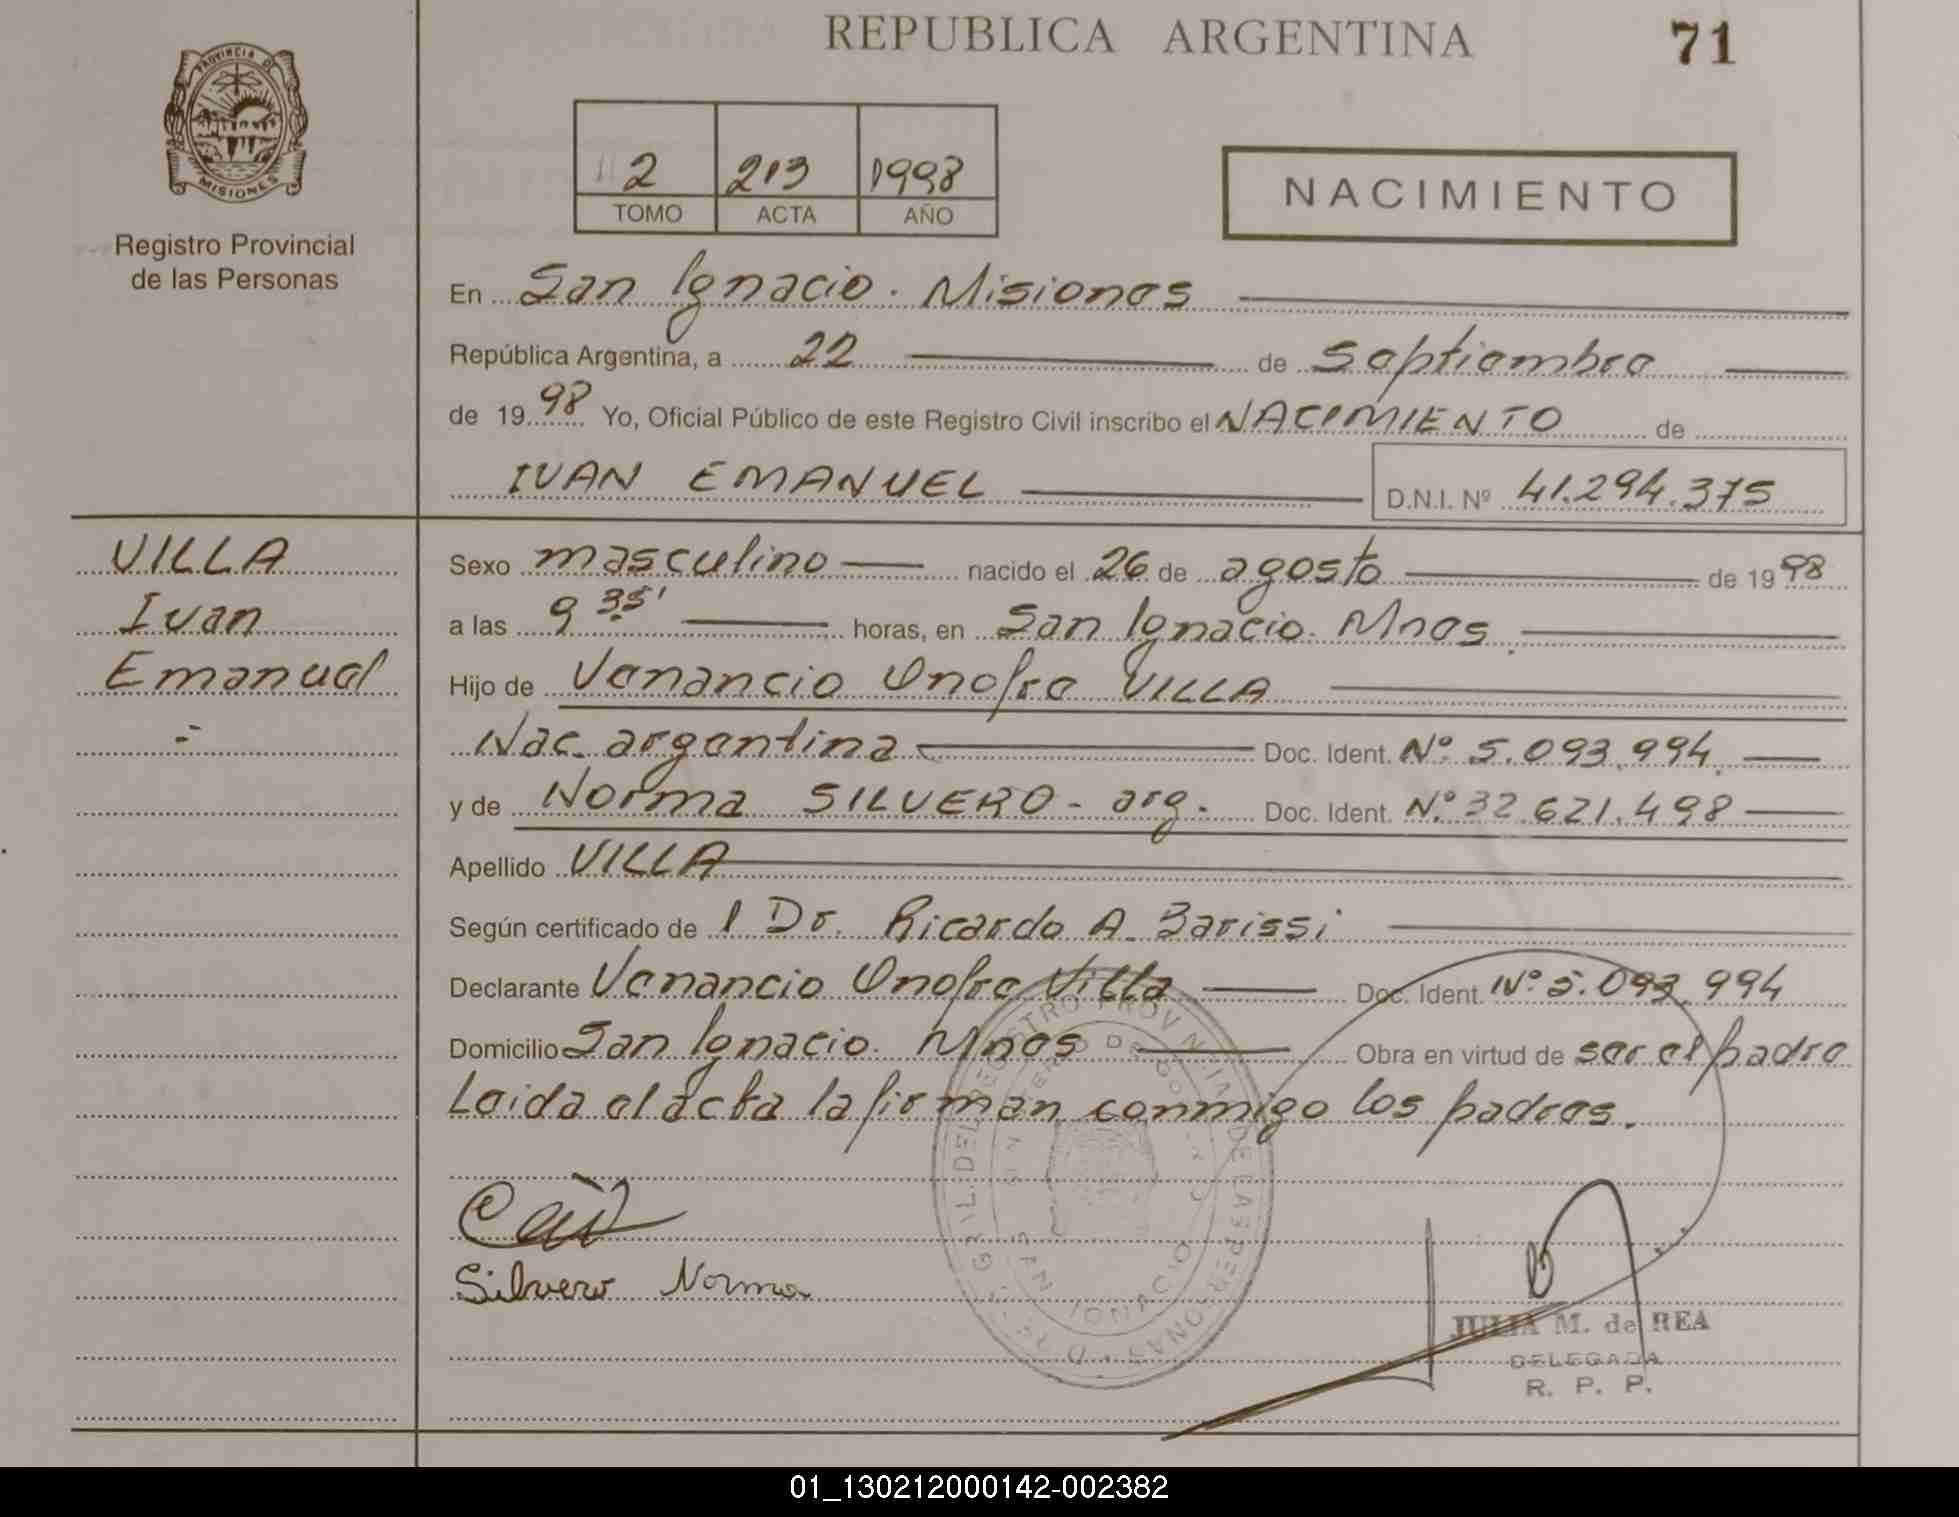 REPUBLICA ARGENTINA
71
PROVINCIA DE
MISIONES
Registro Provincial
de las Personas
2 213 1998
TOMO ACTA AÑO
NACIMIENTO
En San Ignacio. Misiones
República Argentina, a 22 de Septiembre
de 1998 Yo, Oficial Público de este Registro Civil inscribo el NACIMIENTO de
IVAN EMANUEL D.N.I. Nº 41.294.375
VILLA
Ivan
Emanuel
Sexo masculino nacido el 26 de agosto de 1998
a las 9 35' horas, en San Ignacio. Mnes
Hijo de Venancio Onofre VILLA
Nac. argentina Doc. Ident. Nº 5.093.994
y de Norma SILVERO - arg. Doc. Ident. Nº 32.621.498
Apellido VILLA
Según certificado de l Dr. Ricardo A. Barissi
Declarante Venancio Onofre Villa Doc. Ident. Nº 5.093.994
Domicilio San Ignacio. Mnes Obra en virtud de ser el padre
Leida el acta la firman conmigo los padres.
Silvero Norma
JULIA M. de REA
DELEGADA
R. P. P.
01_130212000142-002382